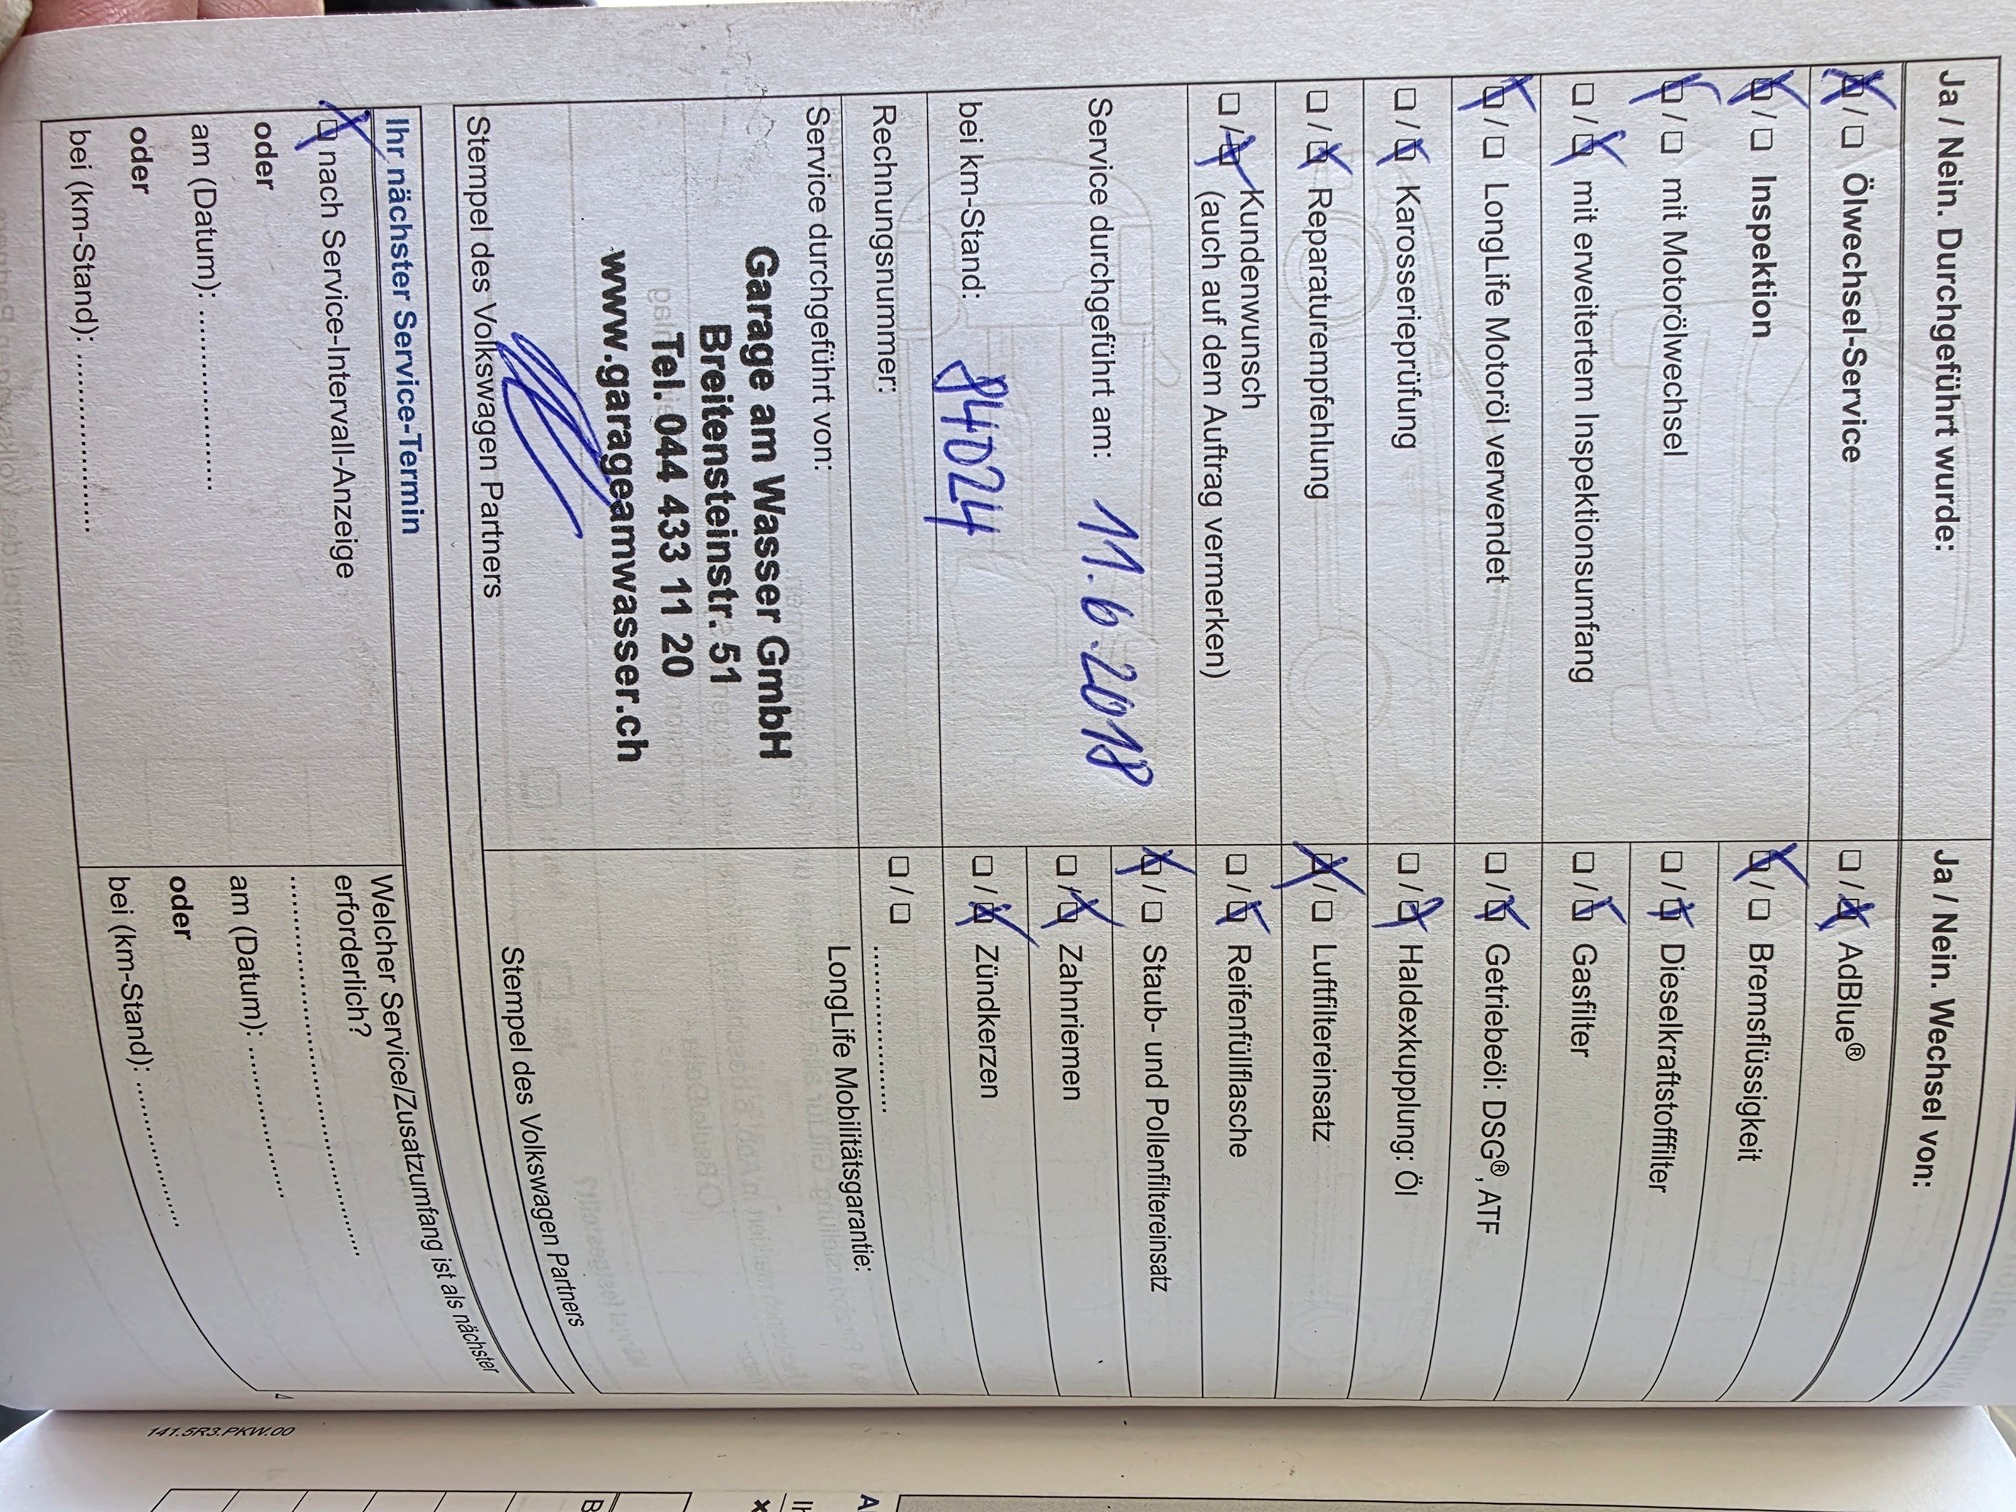 Ja / Nein. Durchgeführt wurde:
☒ / ☐ Ölwechsel-Service
☒ / ☐ Inspektion
☒ / ☐ mit Motorölwechsel
☐ / ☒ mit erweitertem Inspektionsumfang
☒ / ☐ LongLife Motoröl verwendet
☐ / ☒ Karosserieprüfung
☐ / ☒ Reparaturempfehlung
☐ / ☒ Kundenwunsch
(auch auf dem Auftrag vermerken)
Service durchgeführt am: 11.6.2018
bei km-Stand: 84024
Rechnungsnummer:
Service durchgeführt von:
Garage am Wasser GmbH
Breitensteinstr. 51
Tel. 044 433 11 20
www.garageamwasser.ch
Stempel des Volkswagen Partners
Ja / Nein. Wechsel von:
☐ / ☒ AdBlue®
☒ / ☐ Bremsflüssigkeit
☐ / ☒ Dieselkraftstofffilter
☐ / ☒ Gasfilter
☐ / ☒ Getriebeöl: DSG®, ATF
☐ / ☒ Haldexkupplung: Öl
☒ / ☐ Luftfiltereinsatz
☐ / ☒ Reifenfüllflasche
☒ / ☐ Staub- und Pollenfiltereinsatz
☐ / ☒ Zahnriemen
☐ / ☒ Zündkerzen
☐ / ☐ ....................
LongLife Mobilitätsgarantie:
Stempel des Volkswagen Partners
Ihr nächster Service-Termin
☒ nach Service-Intervall-Anzeige
oder
am (Datum): ....................
oder
bei (km-Stand): ....................
Welcher Service/Zusatzumfang ist als nächster
erforderlich?
........................................
am (Datum): ....................
oder
bei (km-Stand): ....................
141.5R3.PKW.00